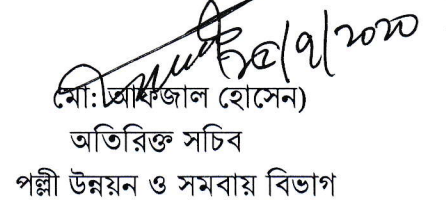 ২৫/৭/২০২০
মো: আফজাল হোসেন)
অতিরিক্ত সচিব
পল্লী উন্নয়ন ও সমবায় বিভাগ